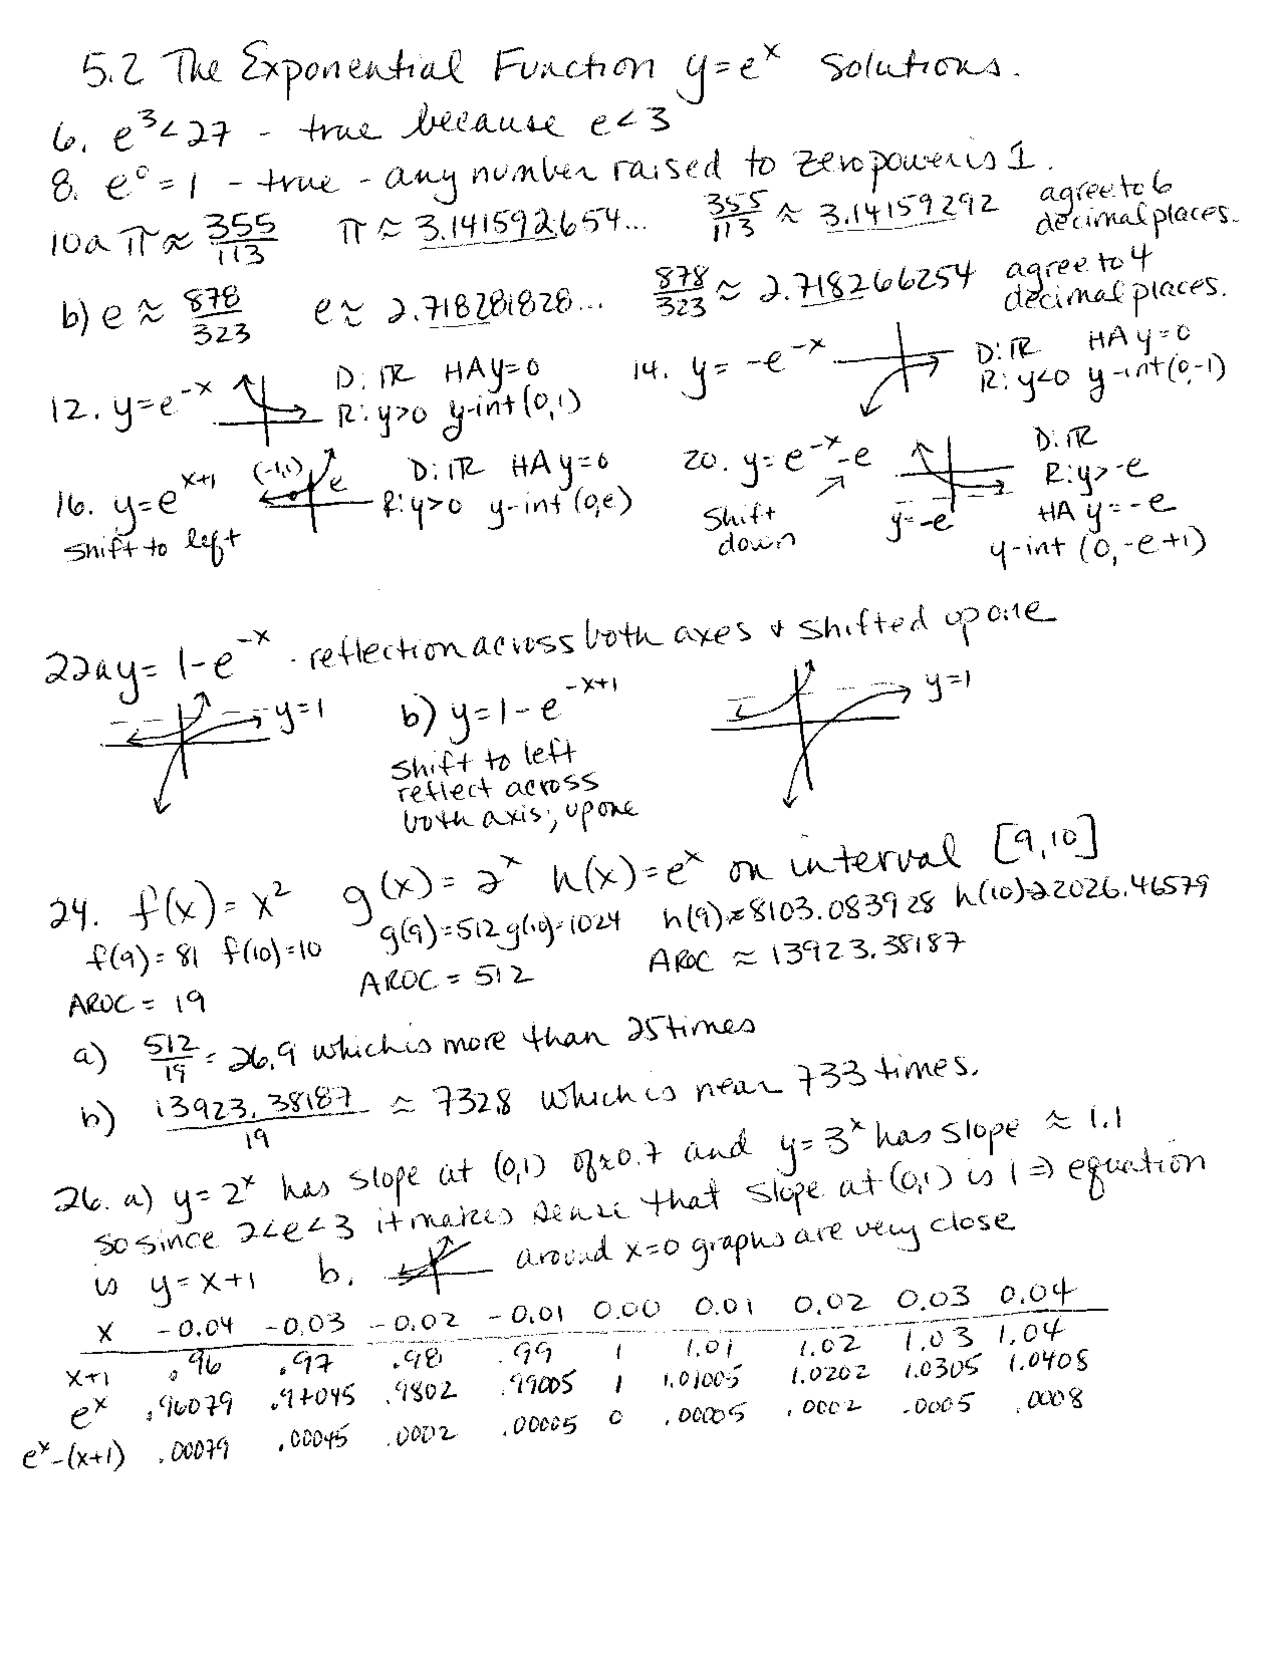 5.2 The Exponential Function y=e^x Solutions.
6. e^3<27 - true because e<3
8. e^0=1 - true - any number raised to zero power is 1.
10a π≈ 355/113 π≈ 3.141592654... 355/113 ≈ 3.14159292 agree to 6 decimal places.
b) e ≈ 878/323 e≈ 2.718281828... 878/323 ≈ 2.718266254 agree to 4 decimal places.
12. y=e^-x D: ℝ HA y=0
R: y>0 y-int (0,1)
14. y= -e^-x D: ℝ HA y=0
R: y<0 y-int (0,-1)
16. y=e^x+1 (-1,1) e D: ℝ HA y=0
Shift to left R: y>0 y-int (0,e)
20. y=e^-x-e D: ℝ
Shift down y=-e R: y>-e
HA y=-e
y-int (0,-e+1)
22a y= 1-e^-x - reflection across both axes & shifted up one
y=1
b) y=1-e^-x+1 y=1
Shift to left
reflect across
both axis, up one
24. f(x)=x^2 g(x)=2^x h(x)=e^x on interval [9,10]
f(9)=81 f(10)=10 g(9)=512 g(10)=1024 h(9)≈8103.083928 h(10)≈22026.46579
AROC = 19 AROC = 512 AROC ≈ 13923.38187
a) 512/19 = 26.9 which is more than 25 times
b) 13923.38187/19 ≈ 732.8 which is near 733 times.
26. a) y=2^x has slope at (0,1) of ≈0.7 and y=3^x has slope ≈ 1.1
so since 2<e<3 it makes sense that slope at (0,1) is 1 ⇒ equation
is y=x+1 b. around x=0 graphs are very close
x -0.04 -0.03 -0.02 -0.01 0.00 0.01 0.02 0.03 0.04
x+1 .96 .97 .98 .99 1 1.01 1.02 1.03 1.04
e^x .96079 .97045 .9802 .99005 1 1.01005 1.0202 1.0305 1.0408
e^x-(x+1) .00079 .00045 .0002 .00005 0 .00005 .0002 .0005 .0008